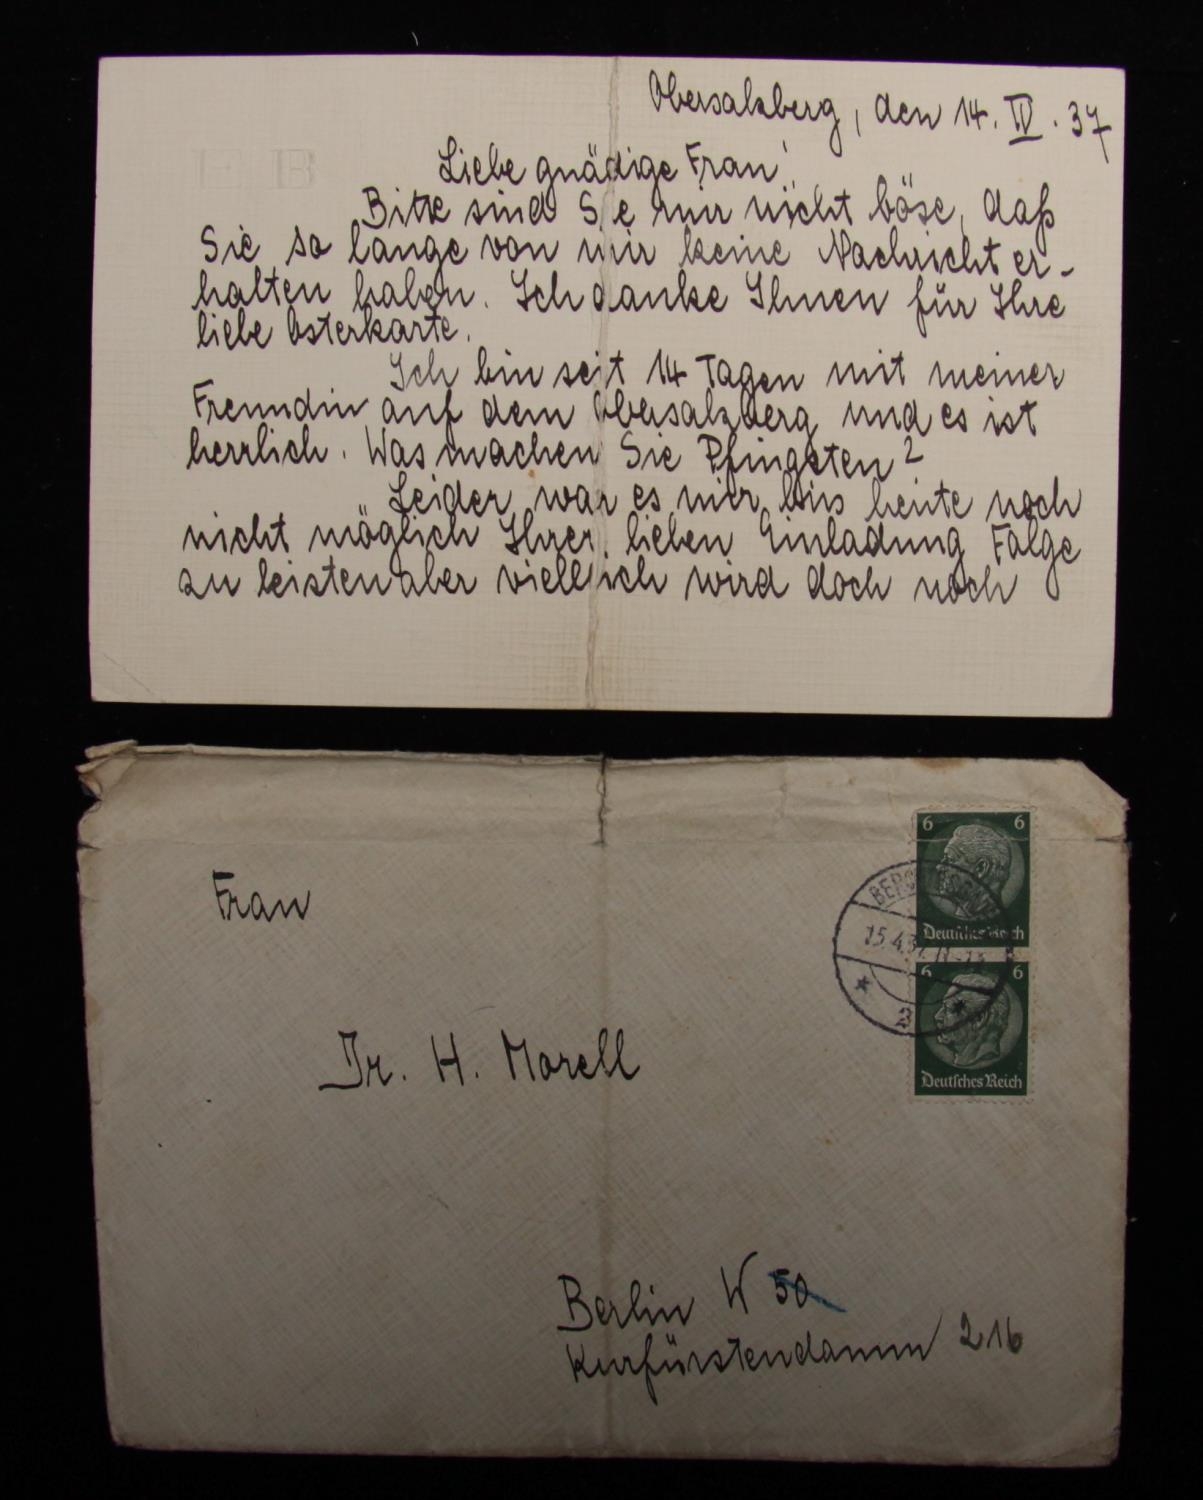 Obersalzberg, den 14. IV. 37
E B
Liebe gnädige Frau!
Bitte sind Sie mir nicht böse, daß
Sie so lange von mir keine Nachricht er-
halten haben. Ich danke Ihnen für Ihre
liebe Osterkarte.
Ich bin seit 14 Tagen mit meiner
Freundin auf dem Obersalzberg und es ist
herrlich. Was machen Sie Pfingsten?
Leider war es mir bis heute noch
nicht möglich Ihrer lieben Einladung Folge
zu leisten aber viellich wird doch noch
6 6
Deutsches Reich
15.4.37
6 6
Deutsches Reich
a
Frau
Dr. H. Morell
Berlin W 50
Kurfürstendamm 216